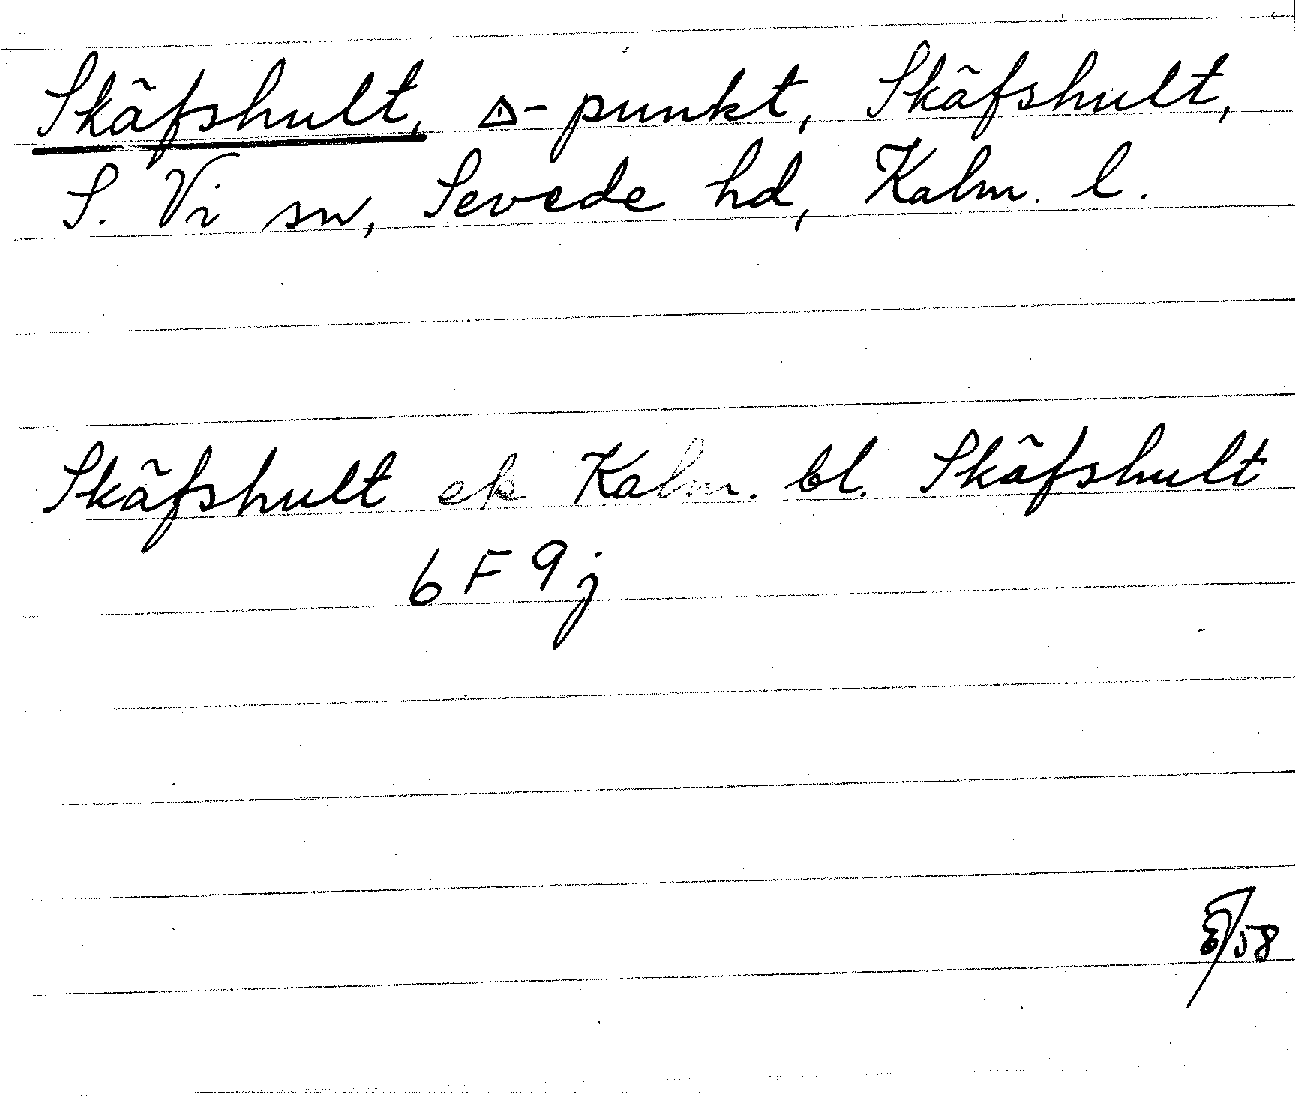 Skäfshult, △-punkt, Skäfshult,
S. Vi sn, Sevede hd, Kalm. l.
Skäfshult ek Kalm. bl. Skäfshult
6 F 9 j
/58